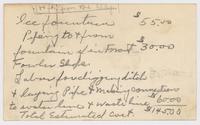 Ice fountain $55.00
Piping to & from
fountain $30.00
Fowler Shop
Labor for digging ditch
& laying Pipe & making connection
to water line & waste line $60.00
Total Estimated cost $145.00